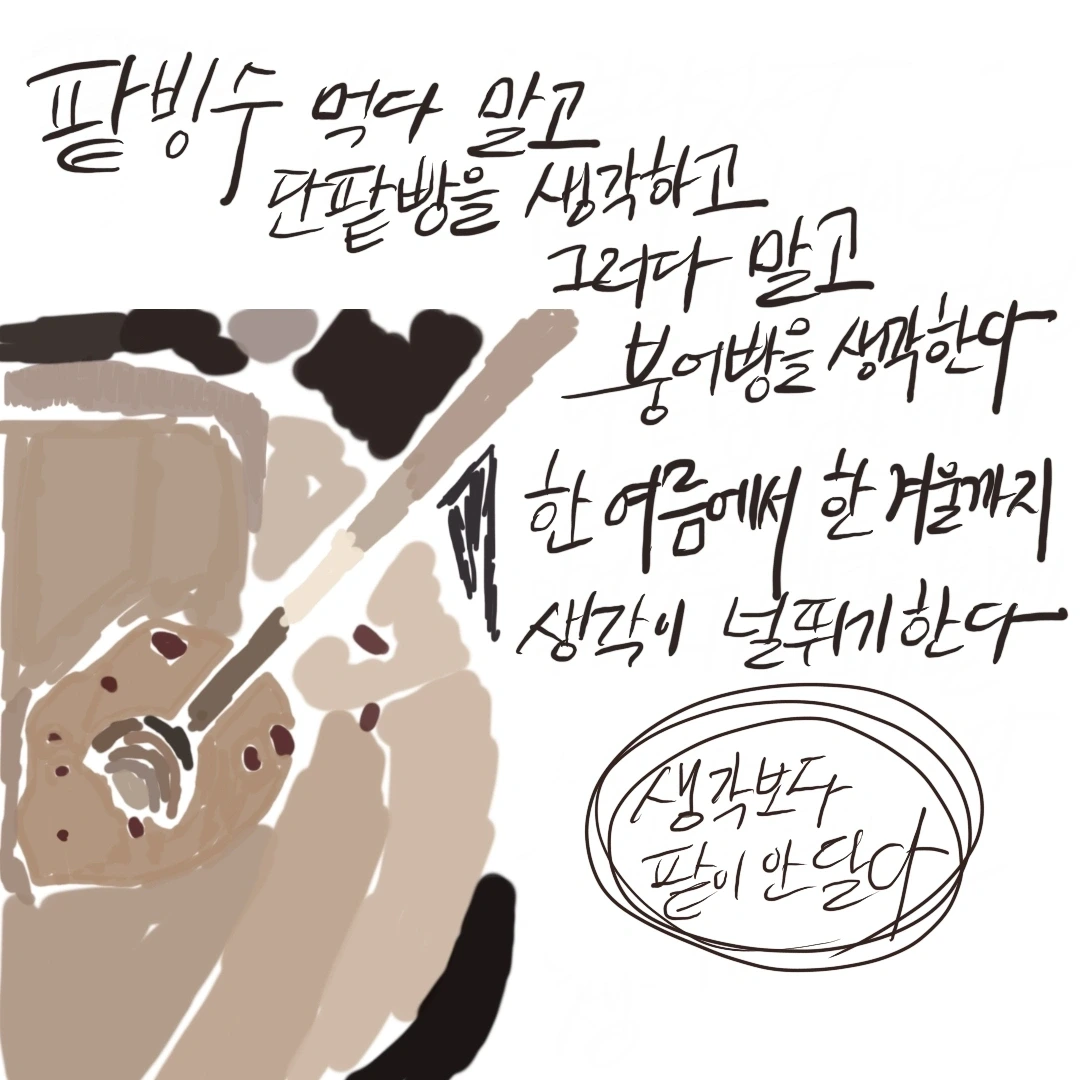 팥빙수 먹다 말고
단팥빵을 생각하고
그러다 말고
붕어빵을 생각한다
한 여름에서 한 겨울까지
생각이 널뛰기한다
생각보다
팥이 안 달다